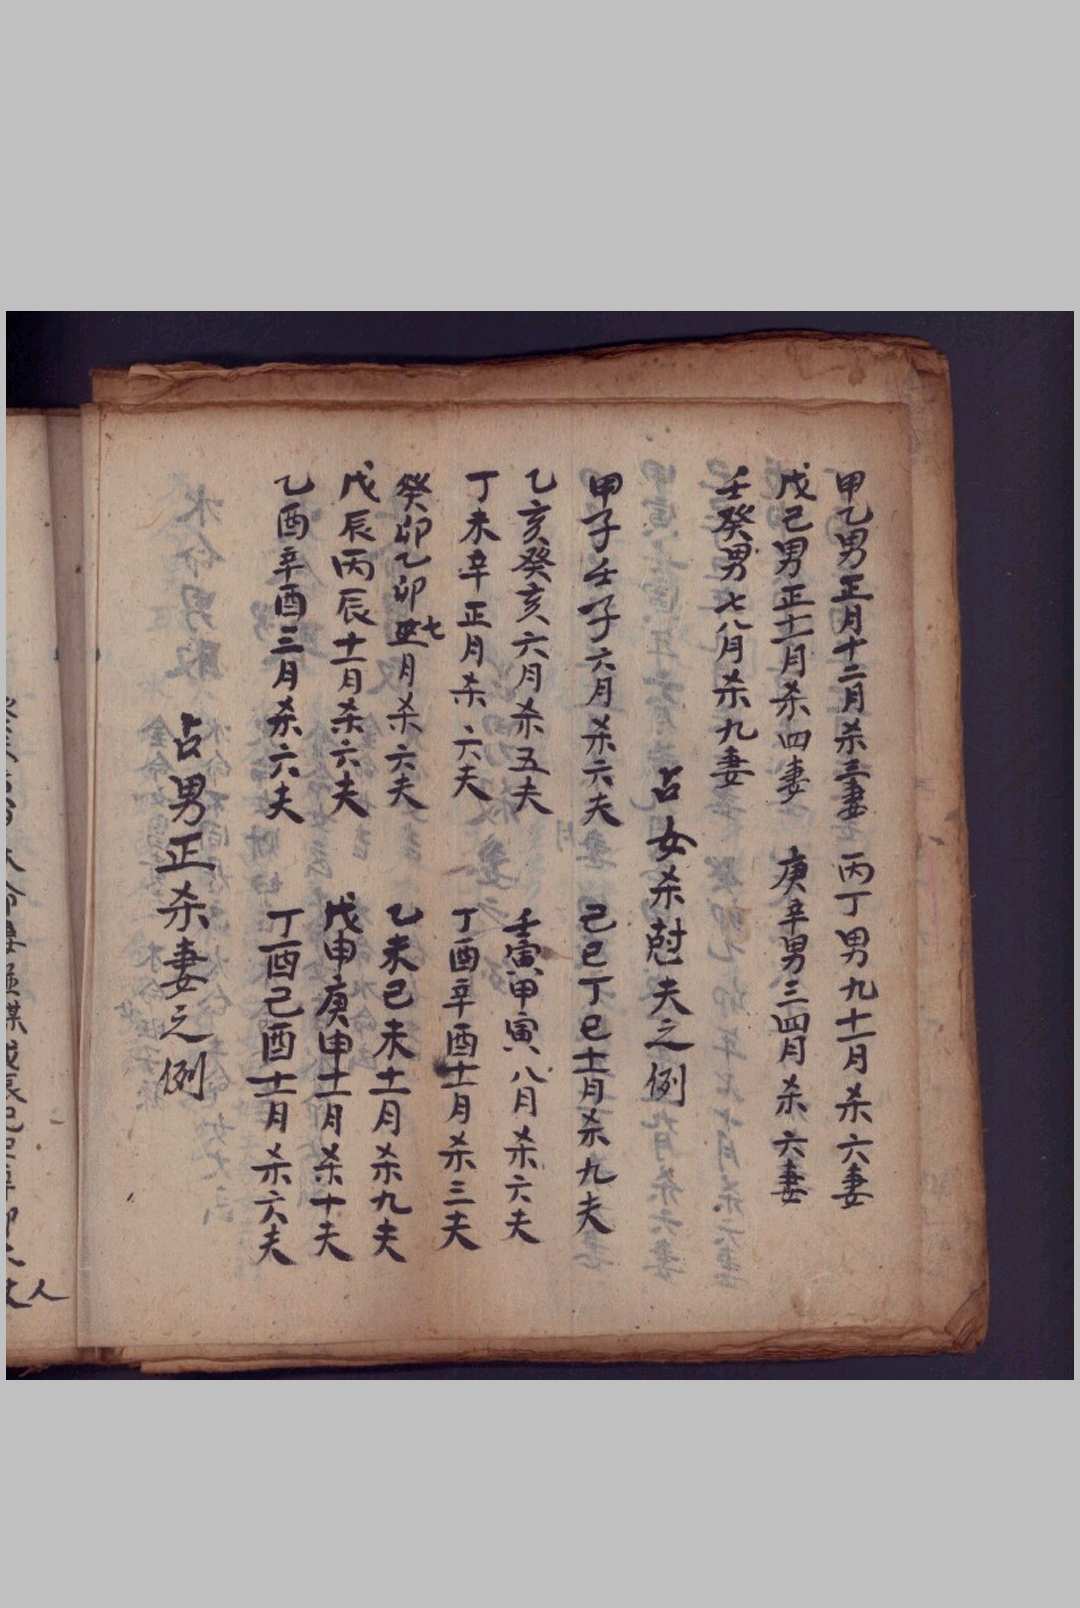 甲乙男正月十二月杀三妻　丙丁男九十一月杀六妻
戊己男正十一月杀四妻　庚辛男三四月杀六妻
壬癸男七八月杀九妻
占女杀尅夫之例
甲子壬子六月杀六夫　己巳丁巳十一月杀九夫
乙亥癸亥六月杀五夫　壬寅甲寅八月杀六夫
丁未辛正月杀六夫　丁酉辛酉十一月杀三夫
癸卯乙卯七月杀六夫　乙未己未十一月杀九夫
戊辰丙辰十一月杀六夫　戊申庚申十一月杀十夫
乙酉辛酉三月杀六夫　丁酉己酉十一月杀六夫
占男正杀妻之例